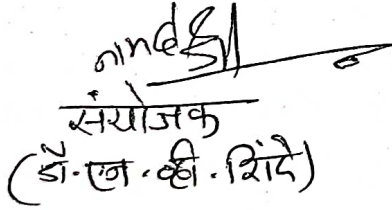 संयोजक
(डॉ.एन.व्ही.शिंदे)